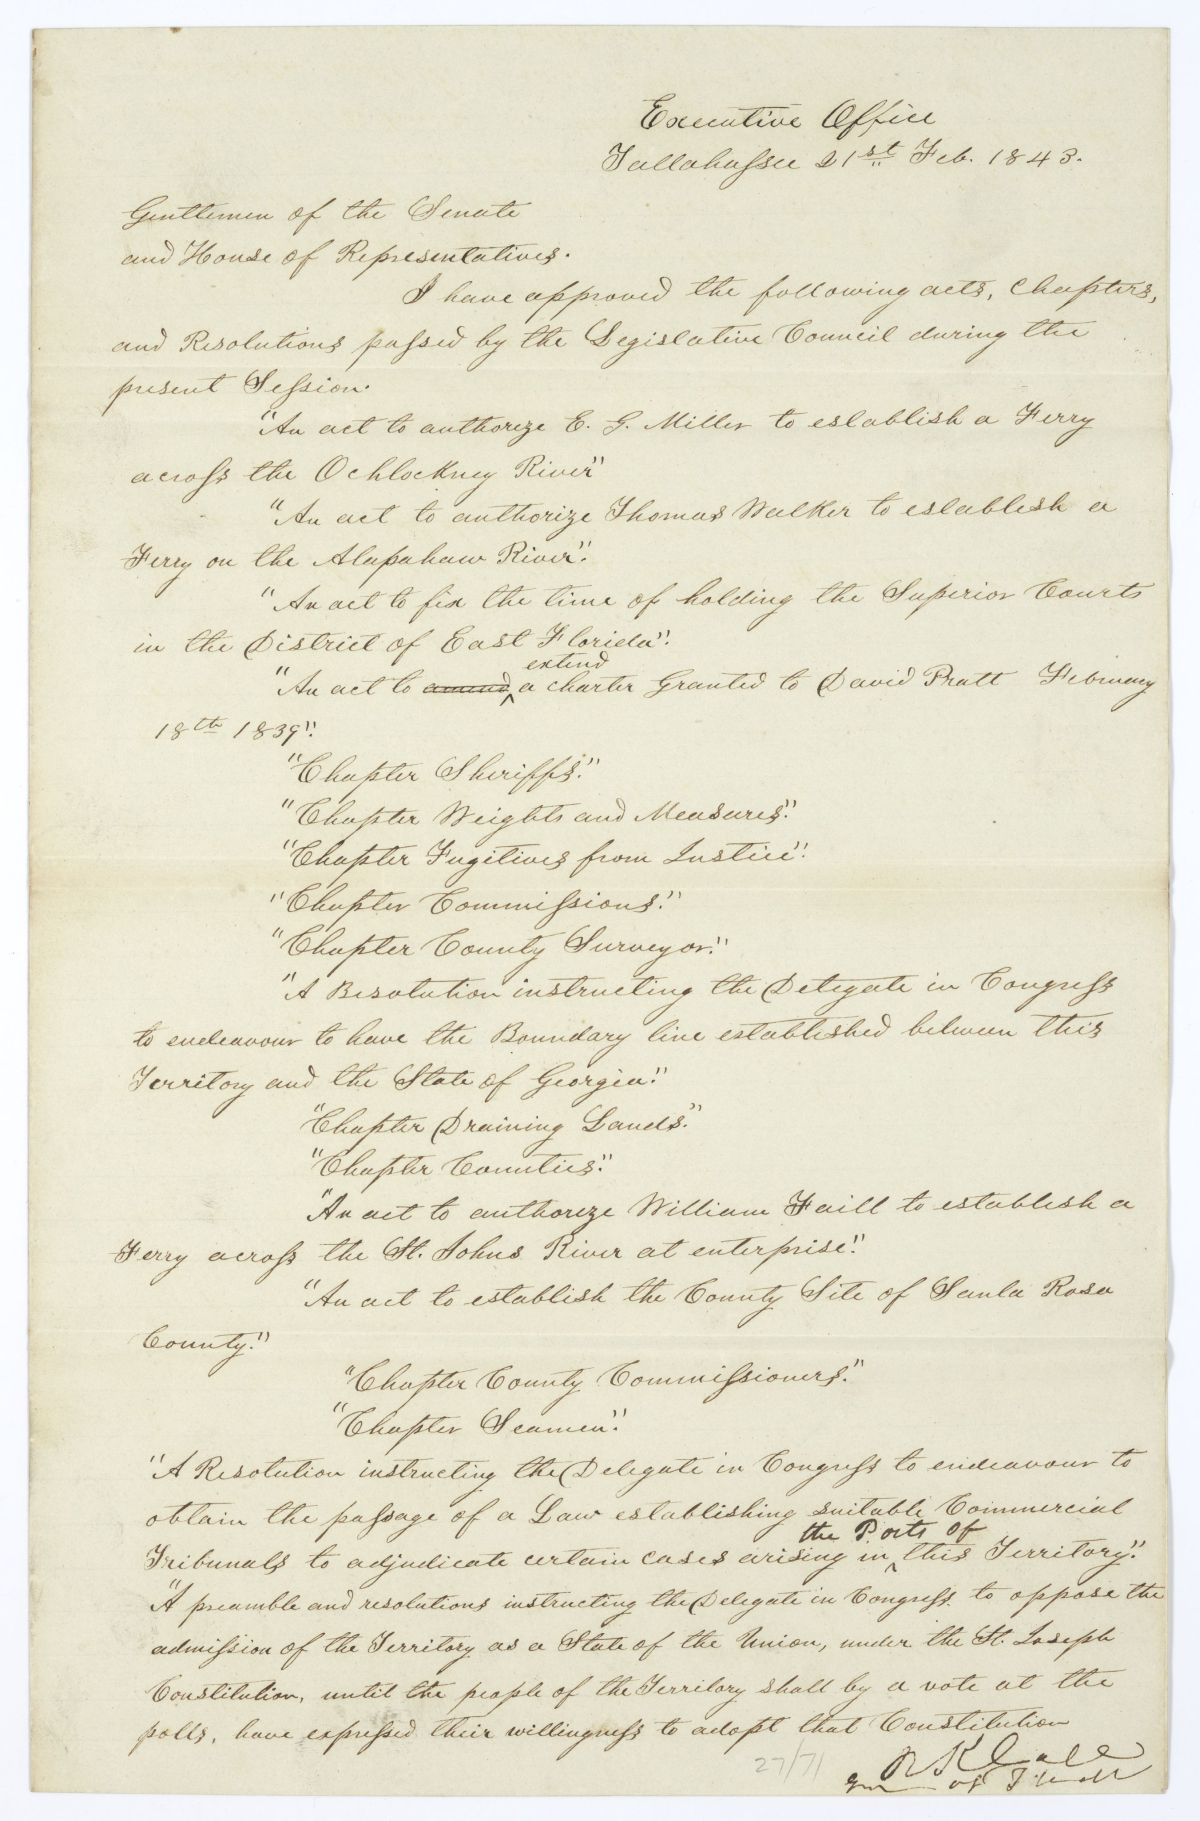 Executive Office
Tallahassee 21st Feb. 1843.
Gentlemen of the Senate
and House of Representatives.
I have approved the following acts, Chapters,
and Resolutions passed by the Legislative Council during the
present Session.
"An act to authorize E. G. Miller to establish a Ferry
across the Ochlockney River"
"An act to authorize Thomas Walker to establish a
Ferry on the Alapahaw River".
"An act to fix the time of holding the Superior Courts
in the District of East Florida".
extend
"An act to amend a charter Granted to David Pratt February
18th 1839".
"Chapter Sheriffs."
"Chapter Weights and Measures".
"Chapter Fugitives from Justice".
"Chapter Commissions."
"Chapter County Surveyor."
"A Resolution instructing the Delegate in Congress
to endeavour to have the Boundary line established between this
Territory and the State of Georgia."
"Chapter Draining Lands."
"Chapter Counties."
"An act to authorize William Faill to establish a
Ferry across the St. Johns River at enterprise."
"An act to establish the County Site of Santa Rosa
County."
"Chapter County Commissioners."
"Chapter Seamen."
"A Resolution instructing the Delegate in Congress to endeavour to
obtain the passage of a Law establishing suitable Commercial
the Ports of
Tribunals to adjudicate certain cases arising in this Territory."
"A preamble and resolutions instructing the Delegate in Congress to oppose the
admission of the Territory as a State of the Union, under the St. Joseph
Constitution, until the people of the Territory shall by a vote at the
polls, have expressed their willingness to adopt that Constitution
R K Call
27/71